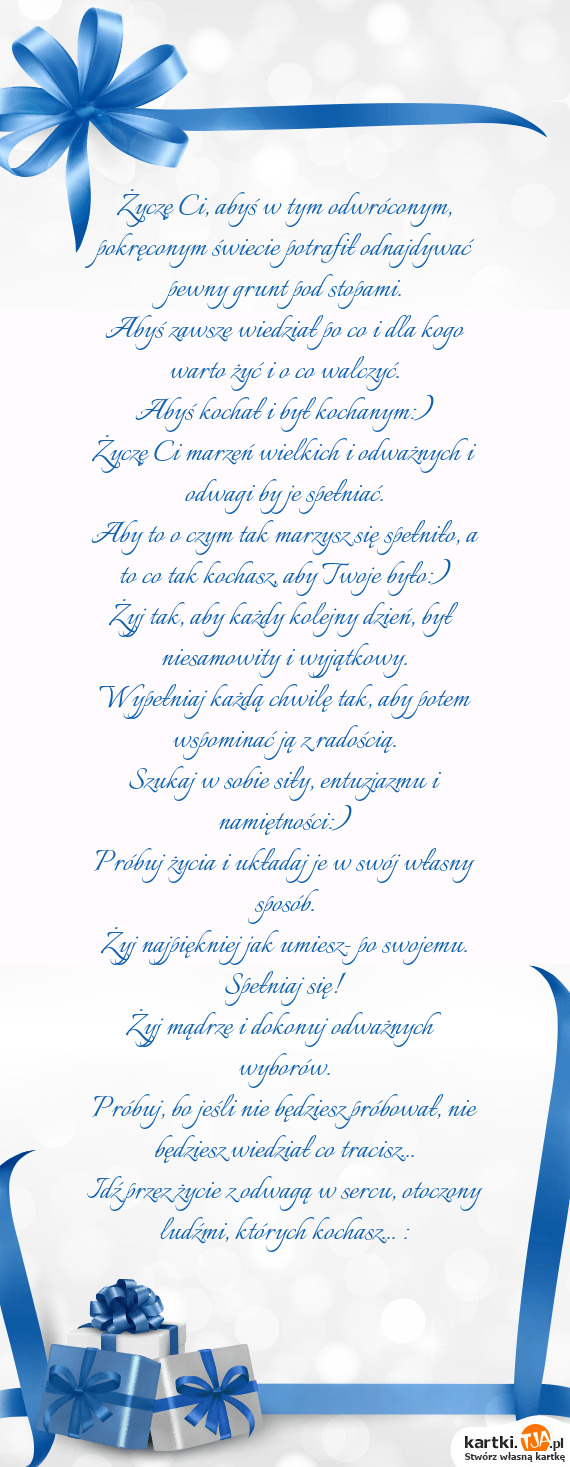 Życzę Ci, abyś w tym odwróconym,
pokręconym świecie potrafił odnajdywać
pewny grunt pod stopami.
Abyś zawsze wiedział po co i dla kogo
warto żyć i o co walczyć.
Abyś kochał i był kochanym:)
Życzę Ci marzeń wielkich i odważnych i
odwagi by je spełniać.
Aby to o czym tak marzysz się spełniło, a
to co tak kochasz, aby Twoje było:)
Żyj tak, aby każdy kolejny dzień, był
niesamowity i wyjątkowy.
Wypełniaj każdą chwilę tak, aby potem
wspominać ją z radością.
Szukaj w sobie siły, entuzjazmu i
namiętności:)
Próbuj życia i układaj je w swój własny
sposób.
Żyj najpiękniej jak umiesz- po swojemu.
Spełniaj się!
Żyj mądrze i dokonuj odważnych
wyborów.
Próbuj, bo jeśli nie będziesz próbował, nie
będziesz wiedział co tracisz...
Idź przez życie z odwagą w sercu, otoczony
ludźmi, których kochasz... :
kartki.TJA.pl
Stwórz własną kartkę